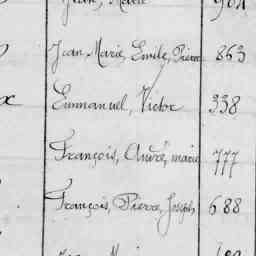 Jean Marie, Emile, Pierre 863
Emmanuel, Victor 338
François, André, marie 777
François, Pierre, Joseph 688